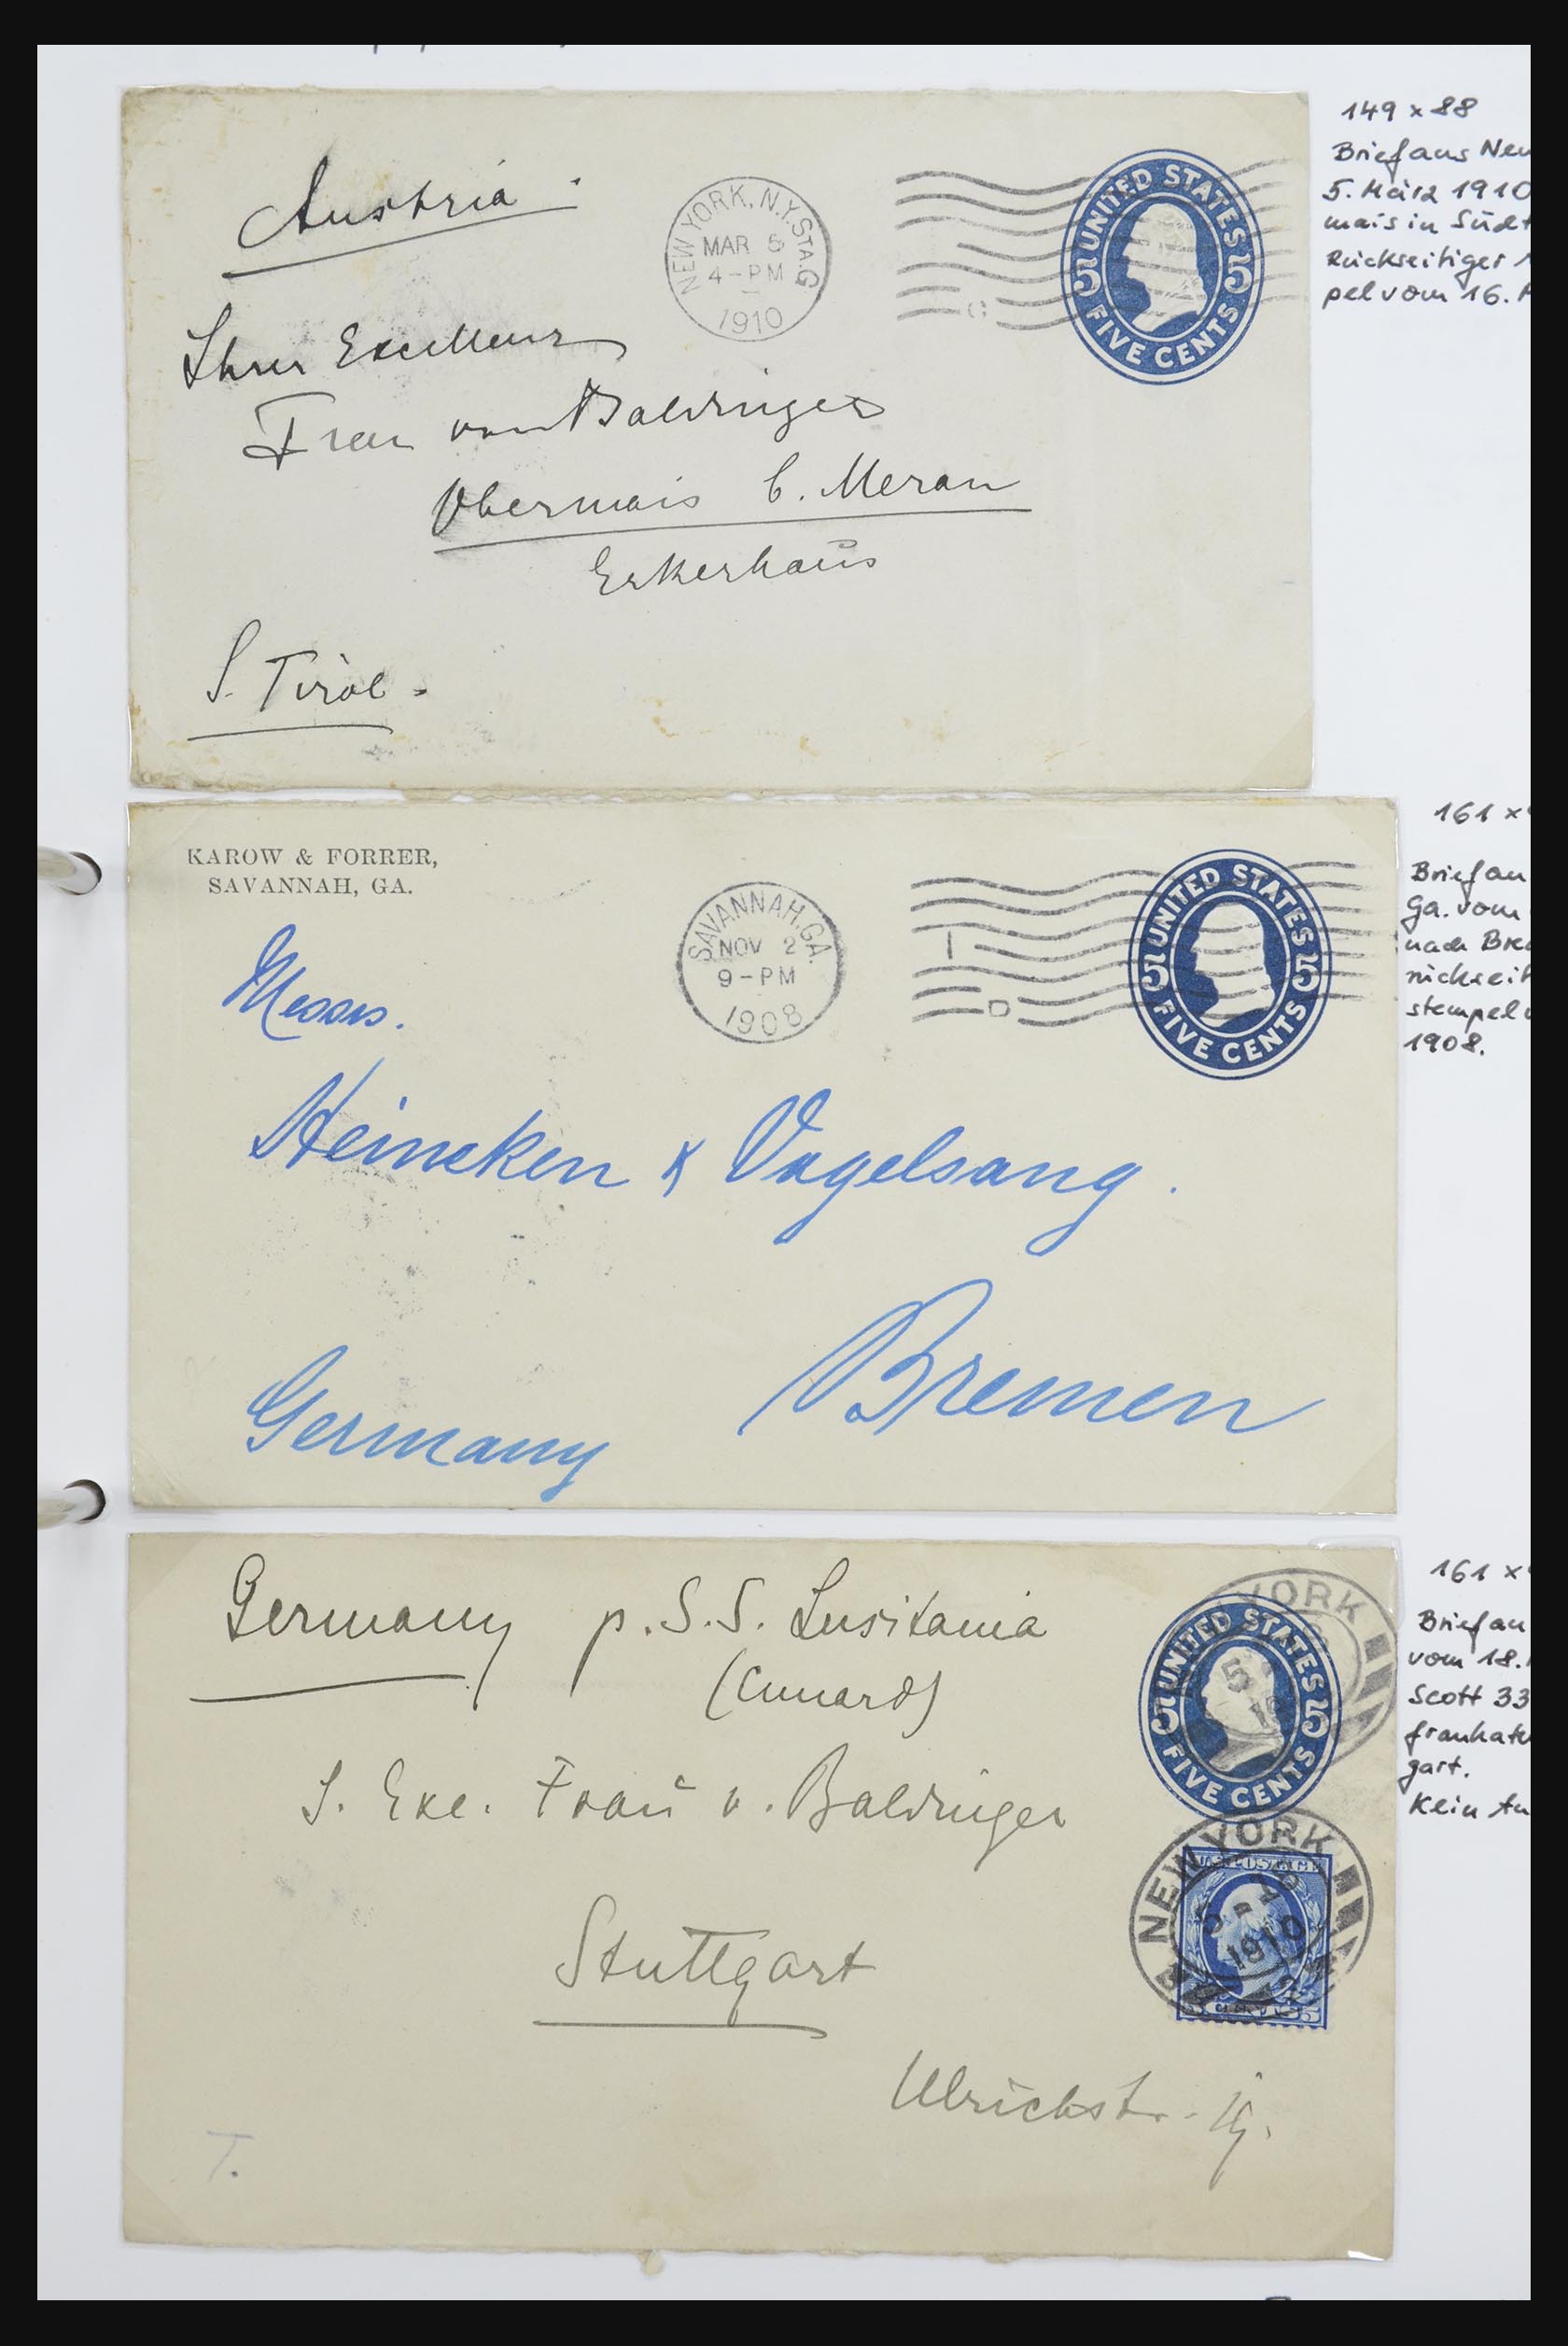 149 x 88
Brief aus New
5. März 1910
mais in Südt
Rückseitiger
pel vom 16.
Austria
NEW YORK, N.Y. STA. G
MAR 5
4-PM
1910
UNITED STATES
5 5
FIVE CENTS
Ihrer Excellenz
Frau von Baldinger
Obermais b. Meran
Erkerhaus
S. Tirol.
161 x
KAROW & FORRER,
SAVANNAH, GA.
SAVANNAH, GA.
NOV 2
9-PM
1908
UNITED STATES
5 5
FIVE CENTS
Brief au
Ga. vom
nach Bre
rückseit
stempel
1908.
Messrs.
Heineken & Vogelsang.
Bremen
Germany
161 x
Brief au
vom 18.
Scott 33
frankatu
gart.
Kein An
Germany p. S.S. Lusitania
(Cunard)
YORK
UNITED STATES
5 5
FIVE CENTS
I. Exc. Frau v. Baldinger
NEW YORK
1910
U.S. POSTAGE
5
Stuttgart
Ulrichstr.
T.